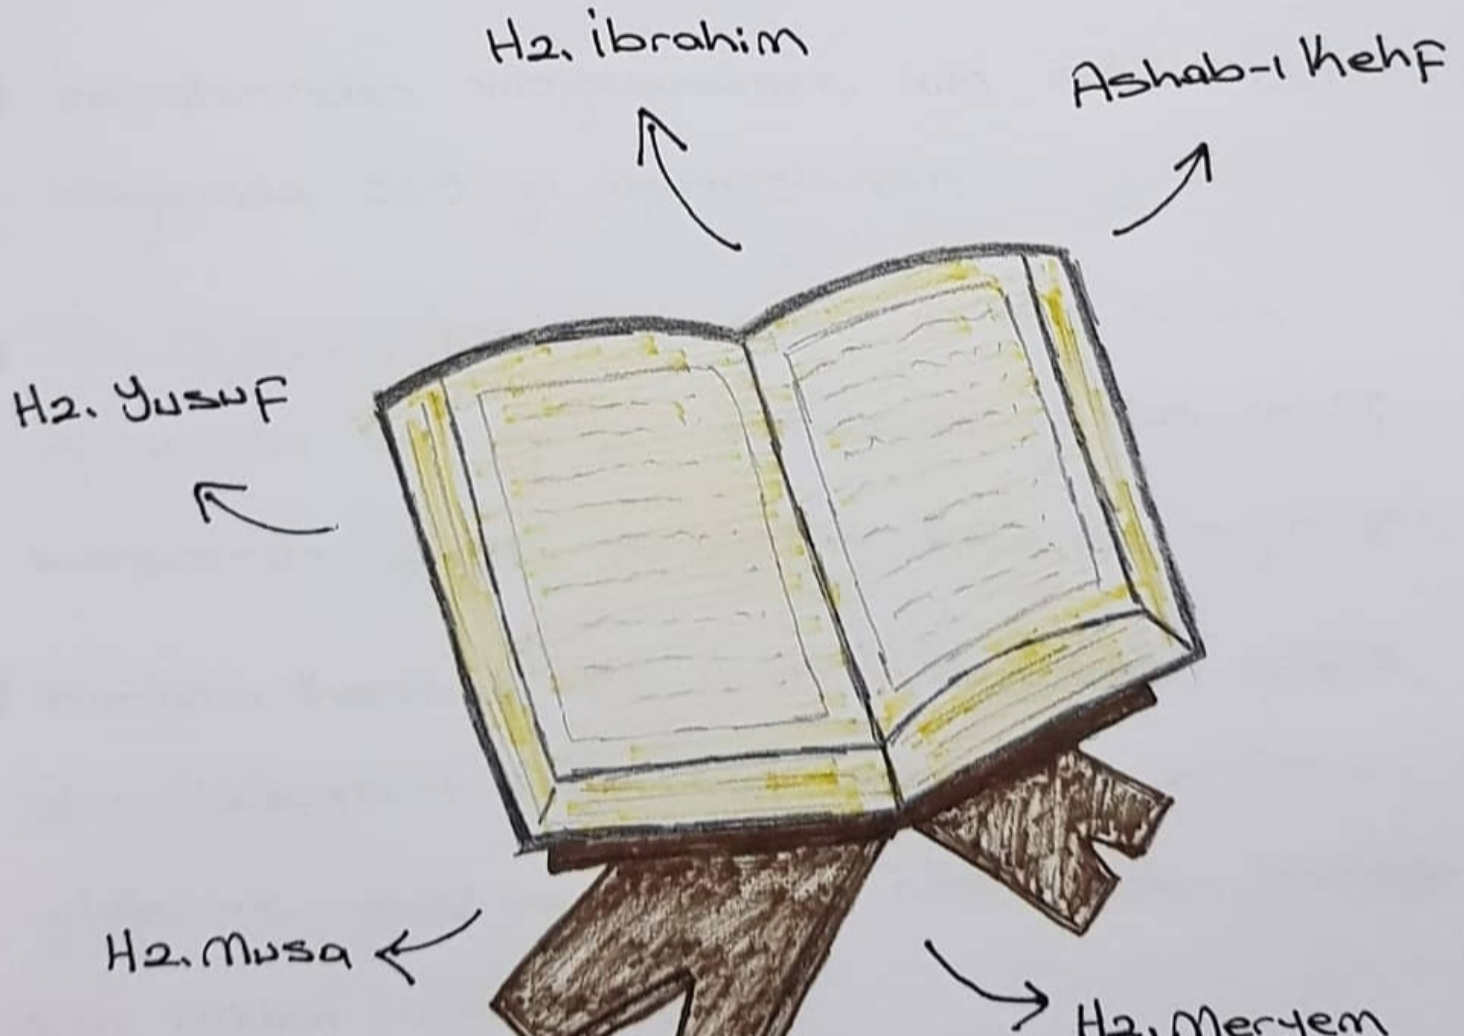 Hz. İbrahim
Ashab-ı Kehf
Hz. Yusuf
Hz. Musa
Hz. Meryem